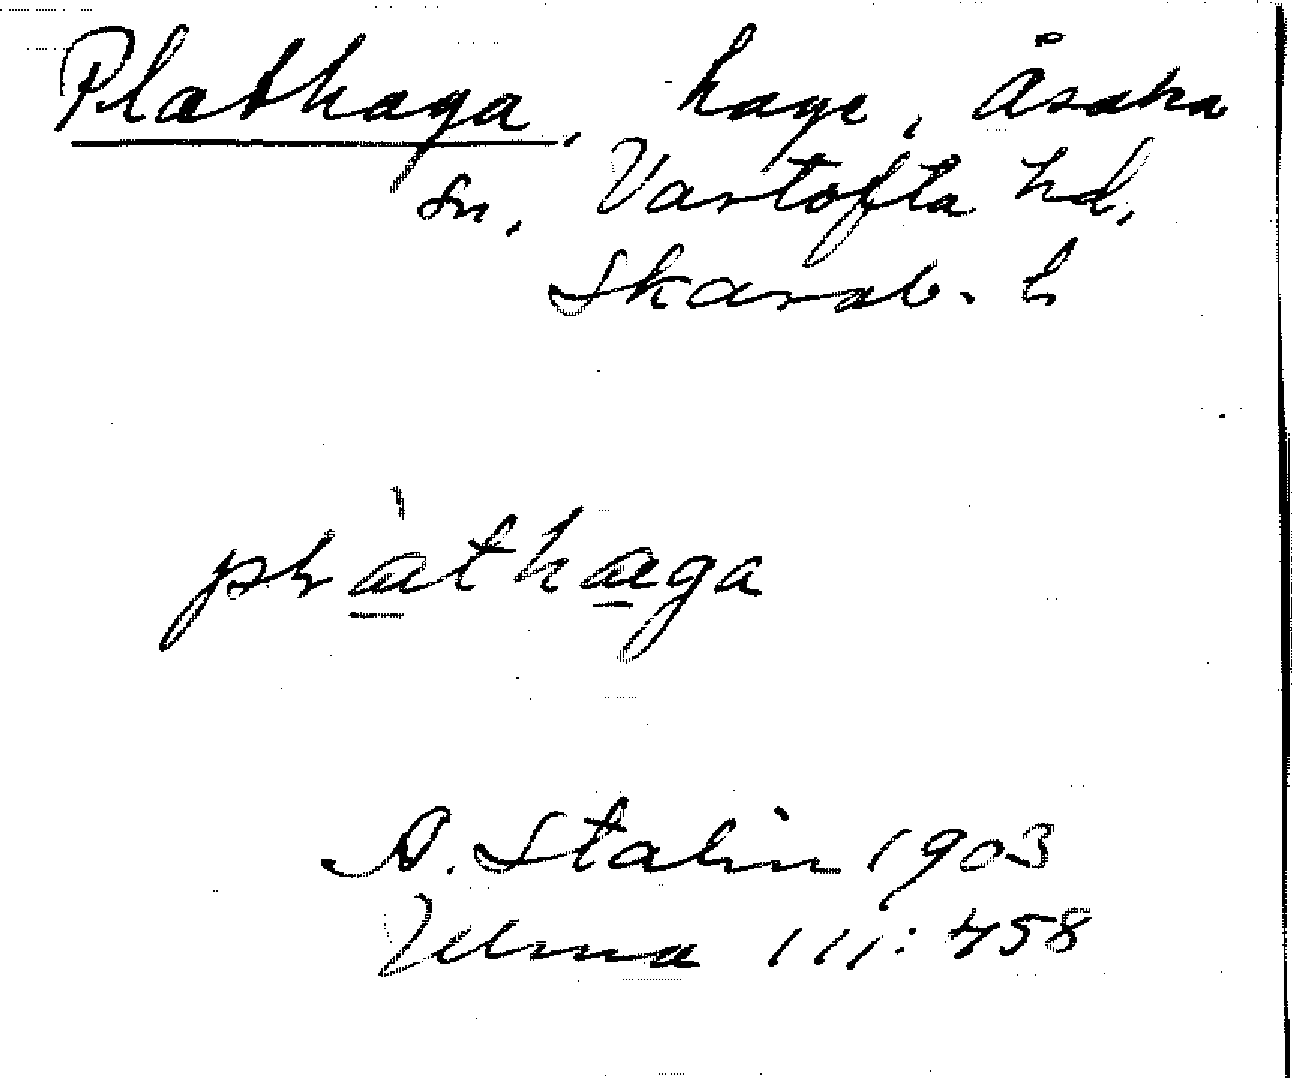 Plathaga, hage, Åsaka
sn, Vartofta hd,
Skarab. l
plàthaga
A. Stalin 1903
Ulma 111:458